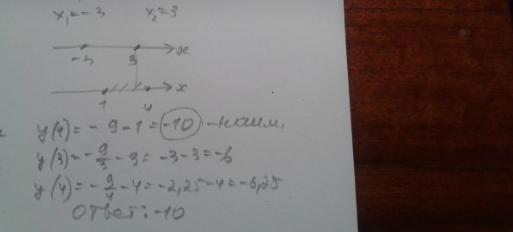 x₁=-3 x₂=3
-3 3 x
1 4 x
y(1)=-9-1=-10 - наим.
y(3)=-9/3-3=-3-3=-6
y(4)=-9/4-4=-2,25-4=-6,25
Ответ: -10